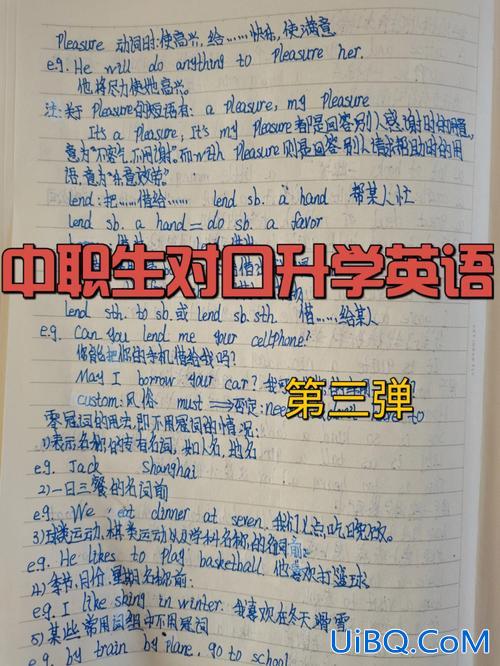 Pleasure 动词时:使高兴,给……快乐,使满意
e.g. He will do anything to pleasure her.
他将尽力使她高兴。
注:关于Pleasure的短语有: a pleasure, my pleasure
It's a pleasure, It's my pleasure都是回答别人感谢时的用语,
意为"不客气,不用谢".而with pleasure则是回答别人请求帮助时的用
语,意为"乐意效劳"
lend:把……借给…… lend sb. a hand 帮某人忙
lend sb. a hand = do sb. a favor
中职生对口升学英语
lend sth. to sb.或 lend sb. sth. 借……给某人
e.g. Can you lend me your cellphone?
你能把你的手机借给我吗?
May I borrow your car? 我
第三弹
custom:风俗 must ⇒否定: to
零冠词的用法,即不用冠词的情况:
1)表示名称的专有名词,如人名,地名
e.g. Jack Shanghai
2)一日三餐的名词前
e.g. We eat dinner at seven. 我们七点吃晚饭。
3)球类运动,棋类运动以及学科名称的名词前:
e.g. He likes to play basketball. 他喜欢打篮球
4)季节,月份,星期名称前:
e.g. I like skiing in winter. 我喜欢在冬天滑雪
5)某些常用词组中不用冠词
e.g. by train by plane, go to school
UiBQ.CoM